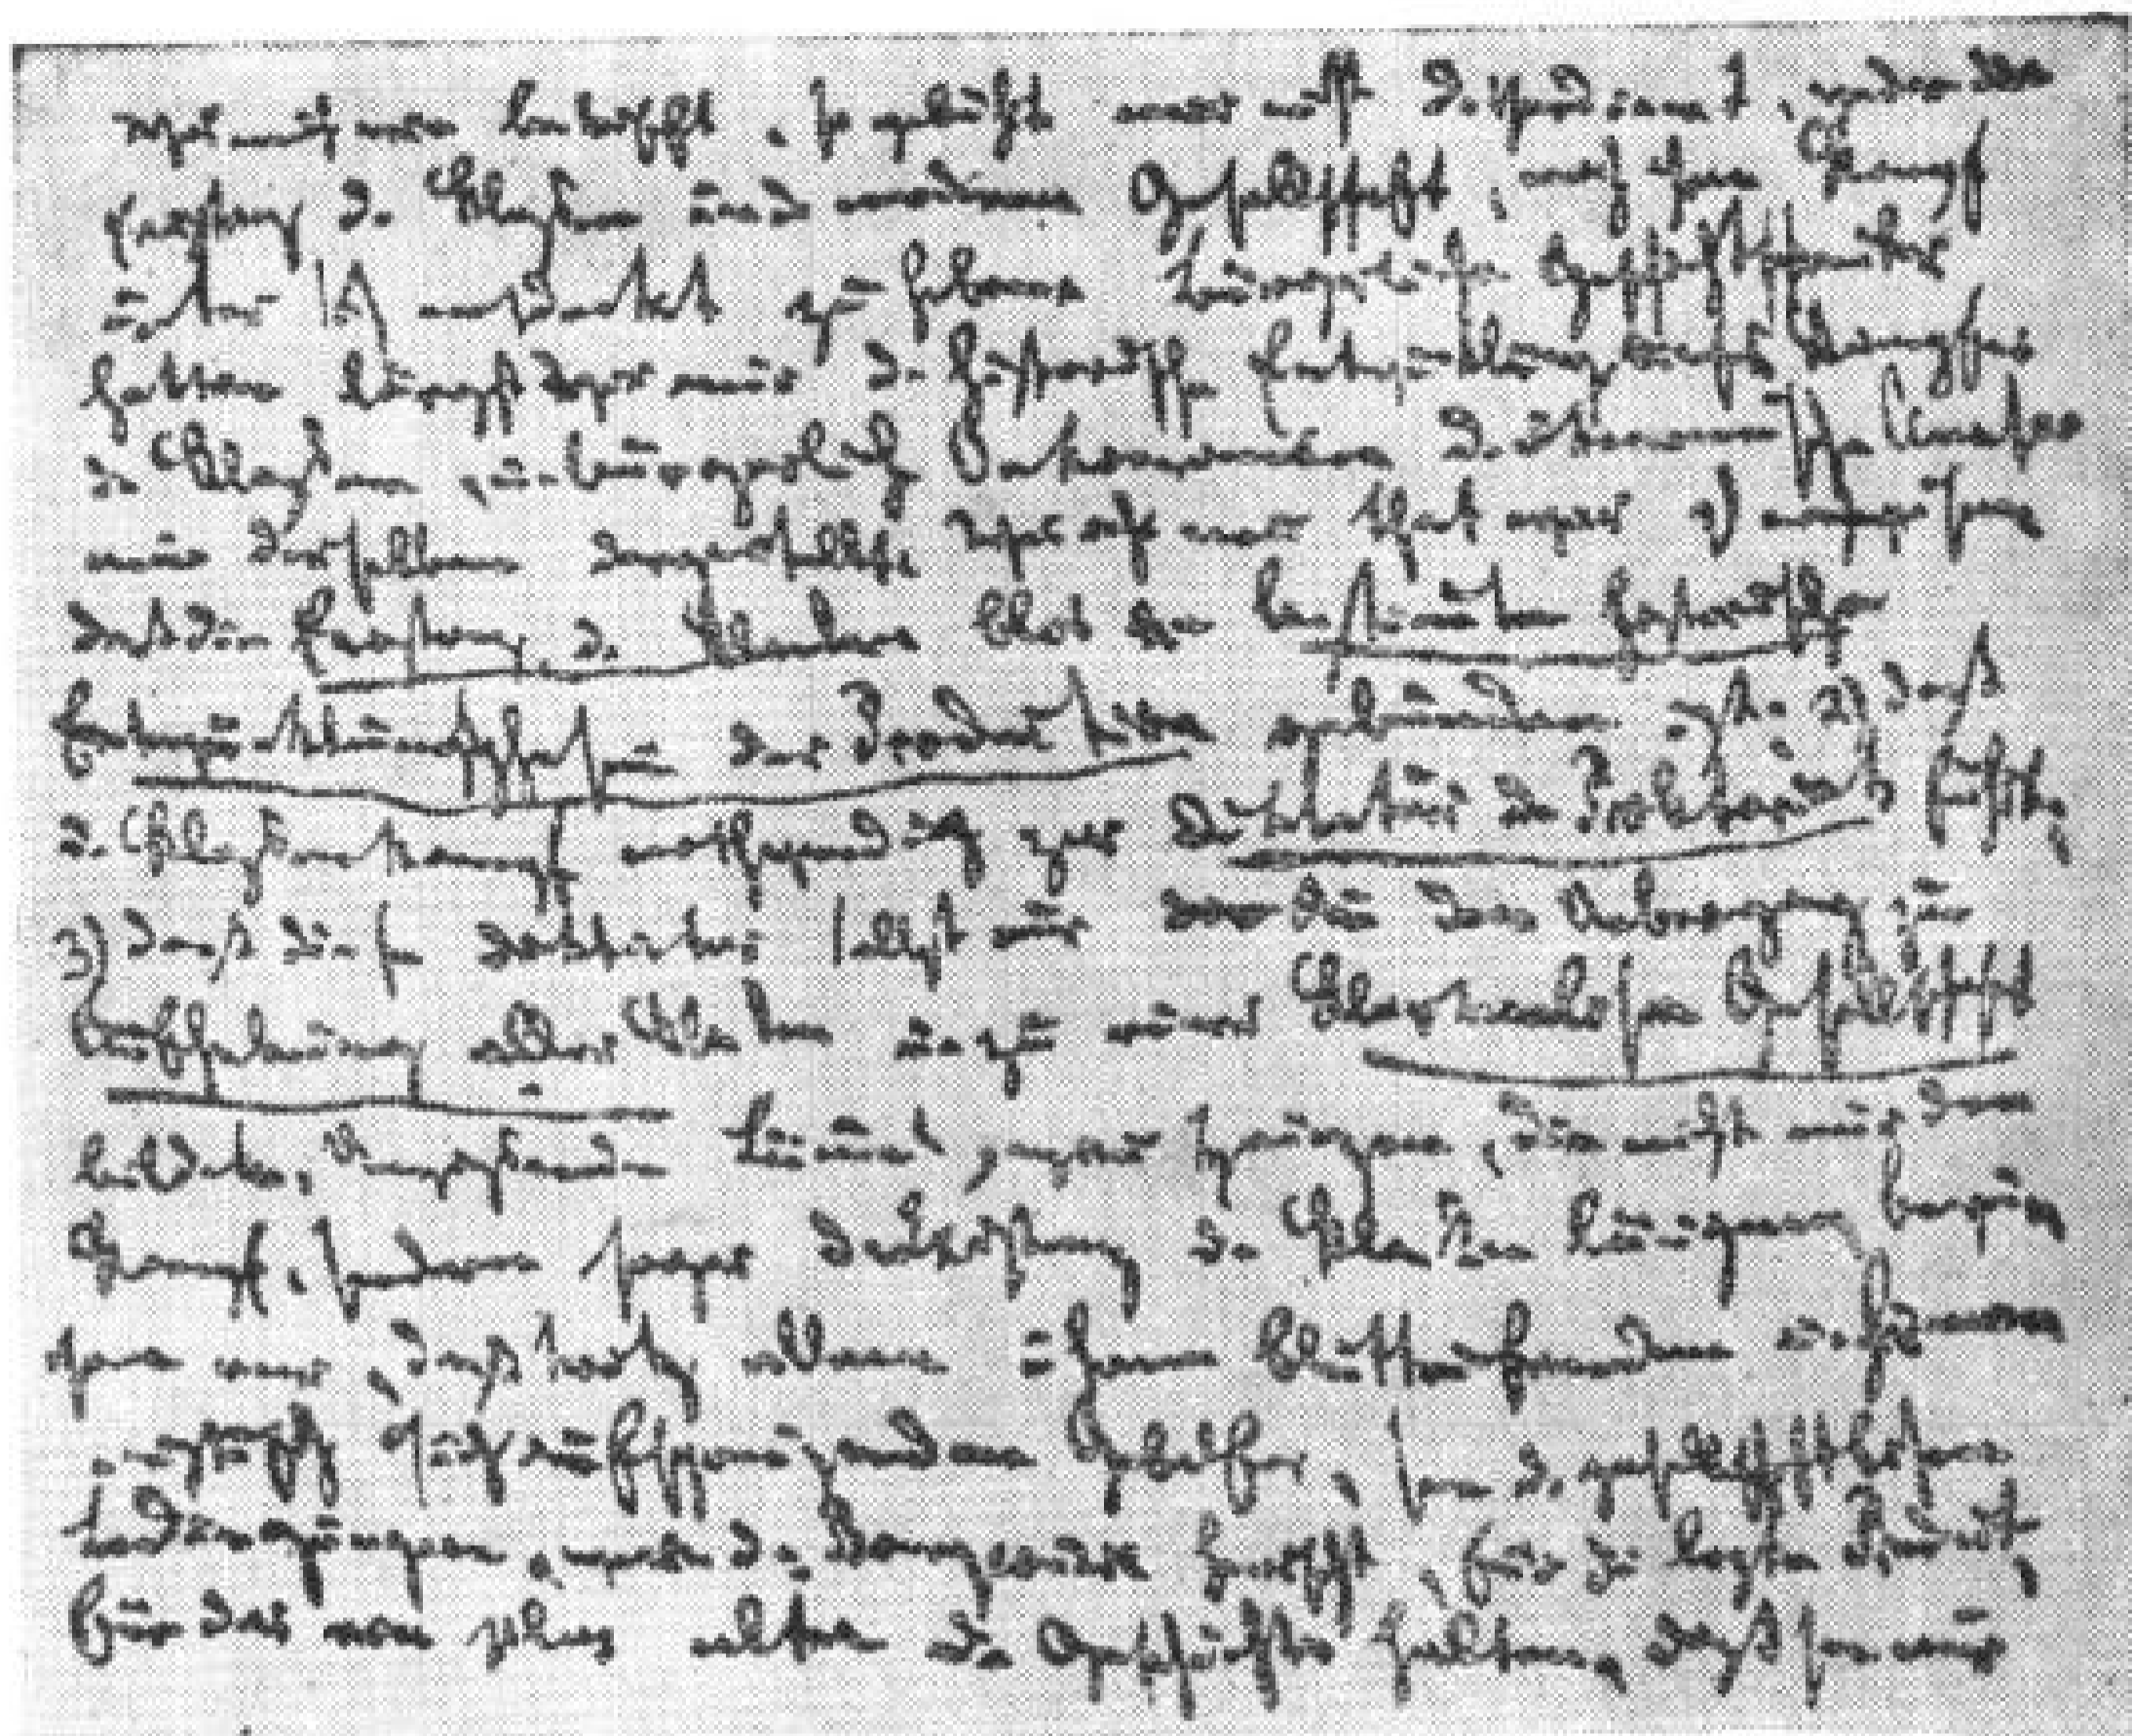 was mich nun betrifft, so gebührt mir nicht d. Verdienst, weder die
Existenz d. Klassen in d. modernen Gesellschaft, noch ihren Kampf
unter sich entdeckt zu haben. Bürgerliche Geschichtschreiber
hatten längst vor mir d. historische Entwicklung dieses Kampfes
d. Klassen, u. bürgerliche Oekonomen d. ökonomische Anatomie
derselben dargestellt. Was ich neu that war 1) nachzuweisen
daß die Existenz d. Klassen bloß an bestimmte historische
Entwicklungsphasen der Production gebunden ist; 2) daß
d. Klassenkampf nothwendig zur Dictatur des Proletariats führt;
3) daß diese Dictatur selbst nur den Uebergang zur
Aufhebung aller Klassen u. zu einer klassenlosen Gesellschaft
bildet. Lümmel, wie Heinzen, die nicht nur den
Kampf, sondern sogar die Existenz d. Klassen läugnen, beweisen
nur, daß trotz allem ihrem bluttriefenden u.
sich aufspreizenden Gebelfer, sie d. gesellschaftlichen
Bedingungen, worin d. Bourgeoisie herrscht, für d. letzte Product,
für das non plus ultra d. Geschichte halten, daß sie nur